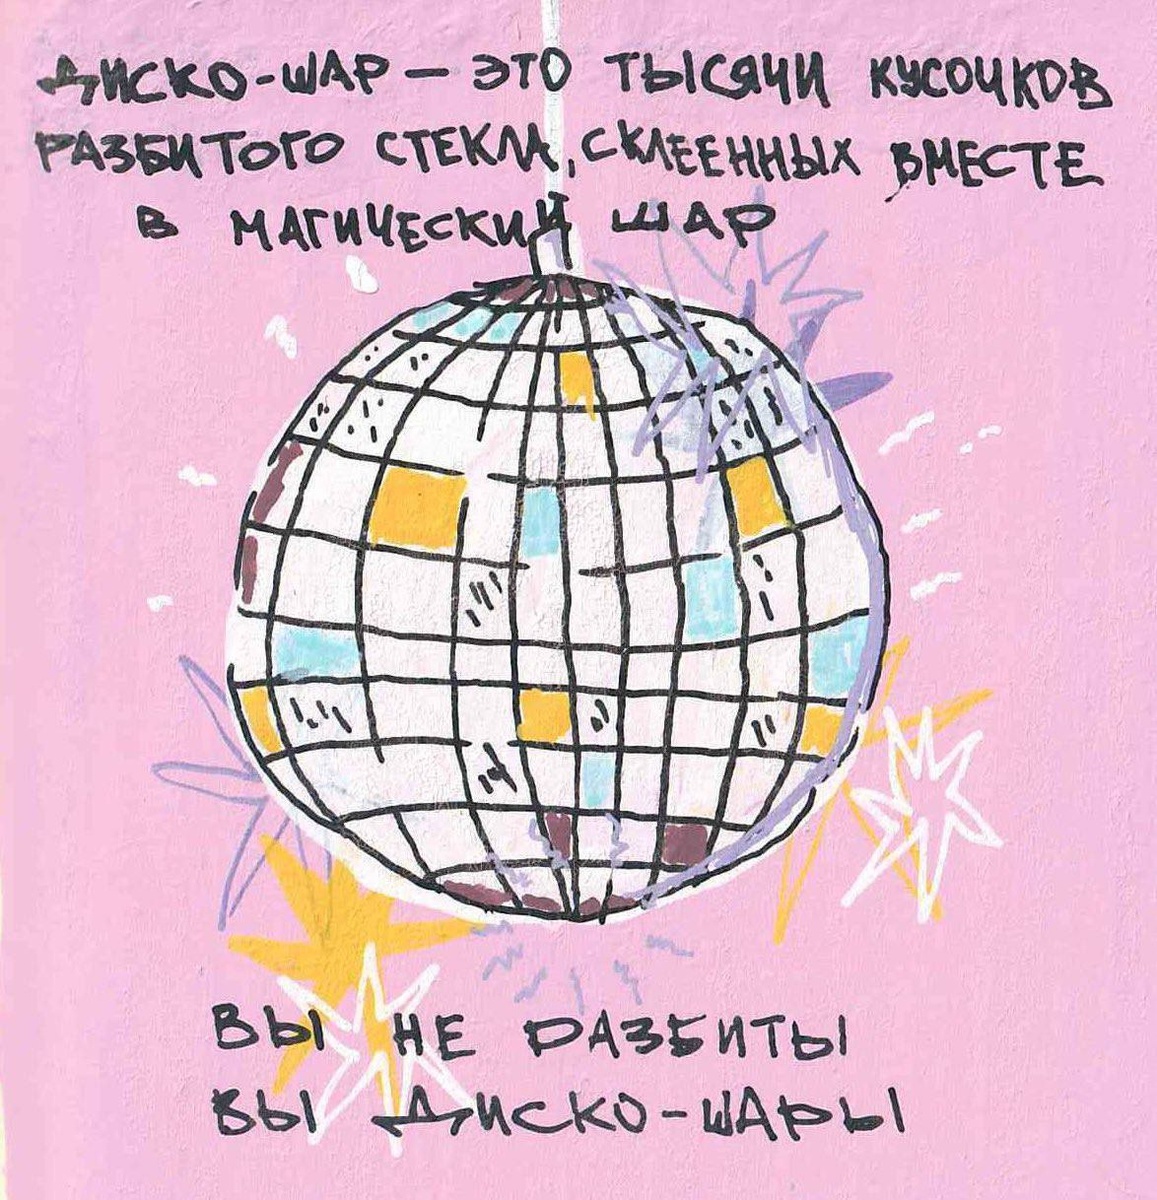 ДИСКО-ШАР — ЭТО ТЫСЯЧИ КУСОЧКОВ
РАЗБИТОГО СТЕКЛА, СКЛЕЕННЫХ ВМЕСТЕ
В МАГИЧЕСКИЙ ШАР
ВЫ НЕ РАЗБИТЫ
ВЫ ДИСКО-ШАРЫ